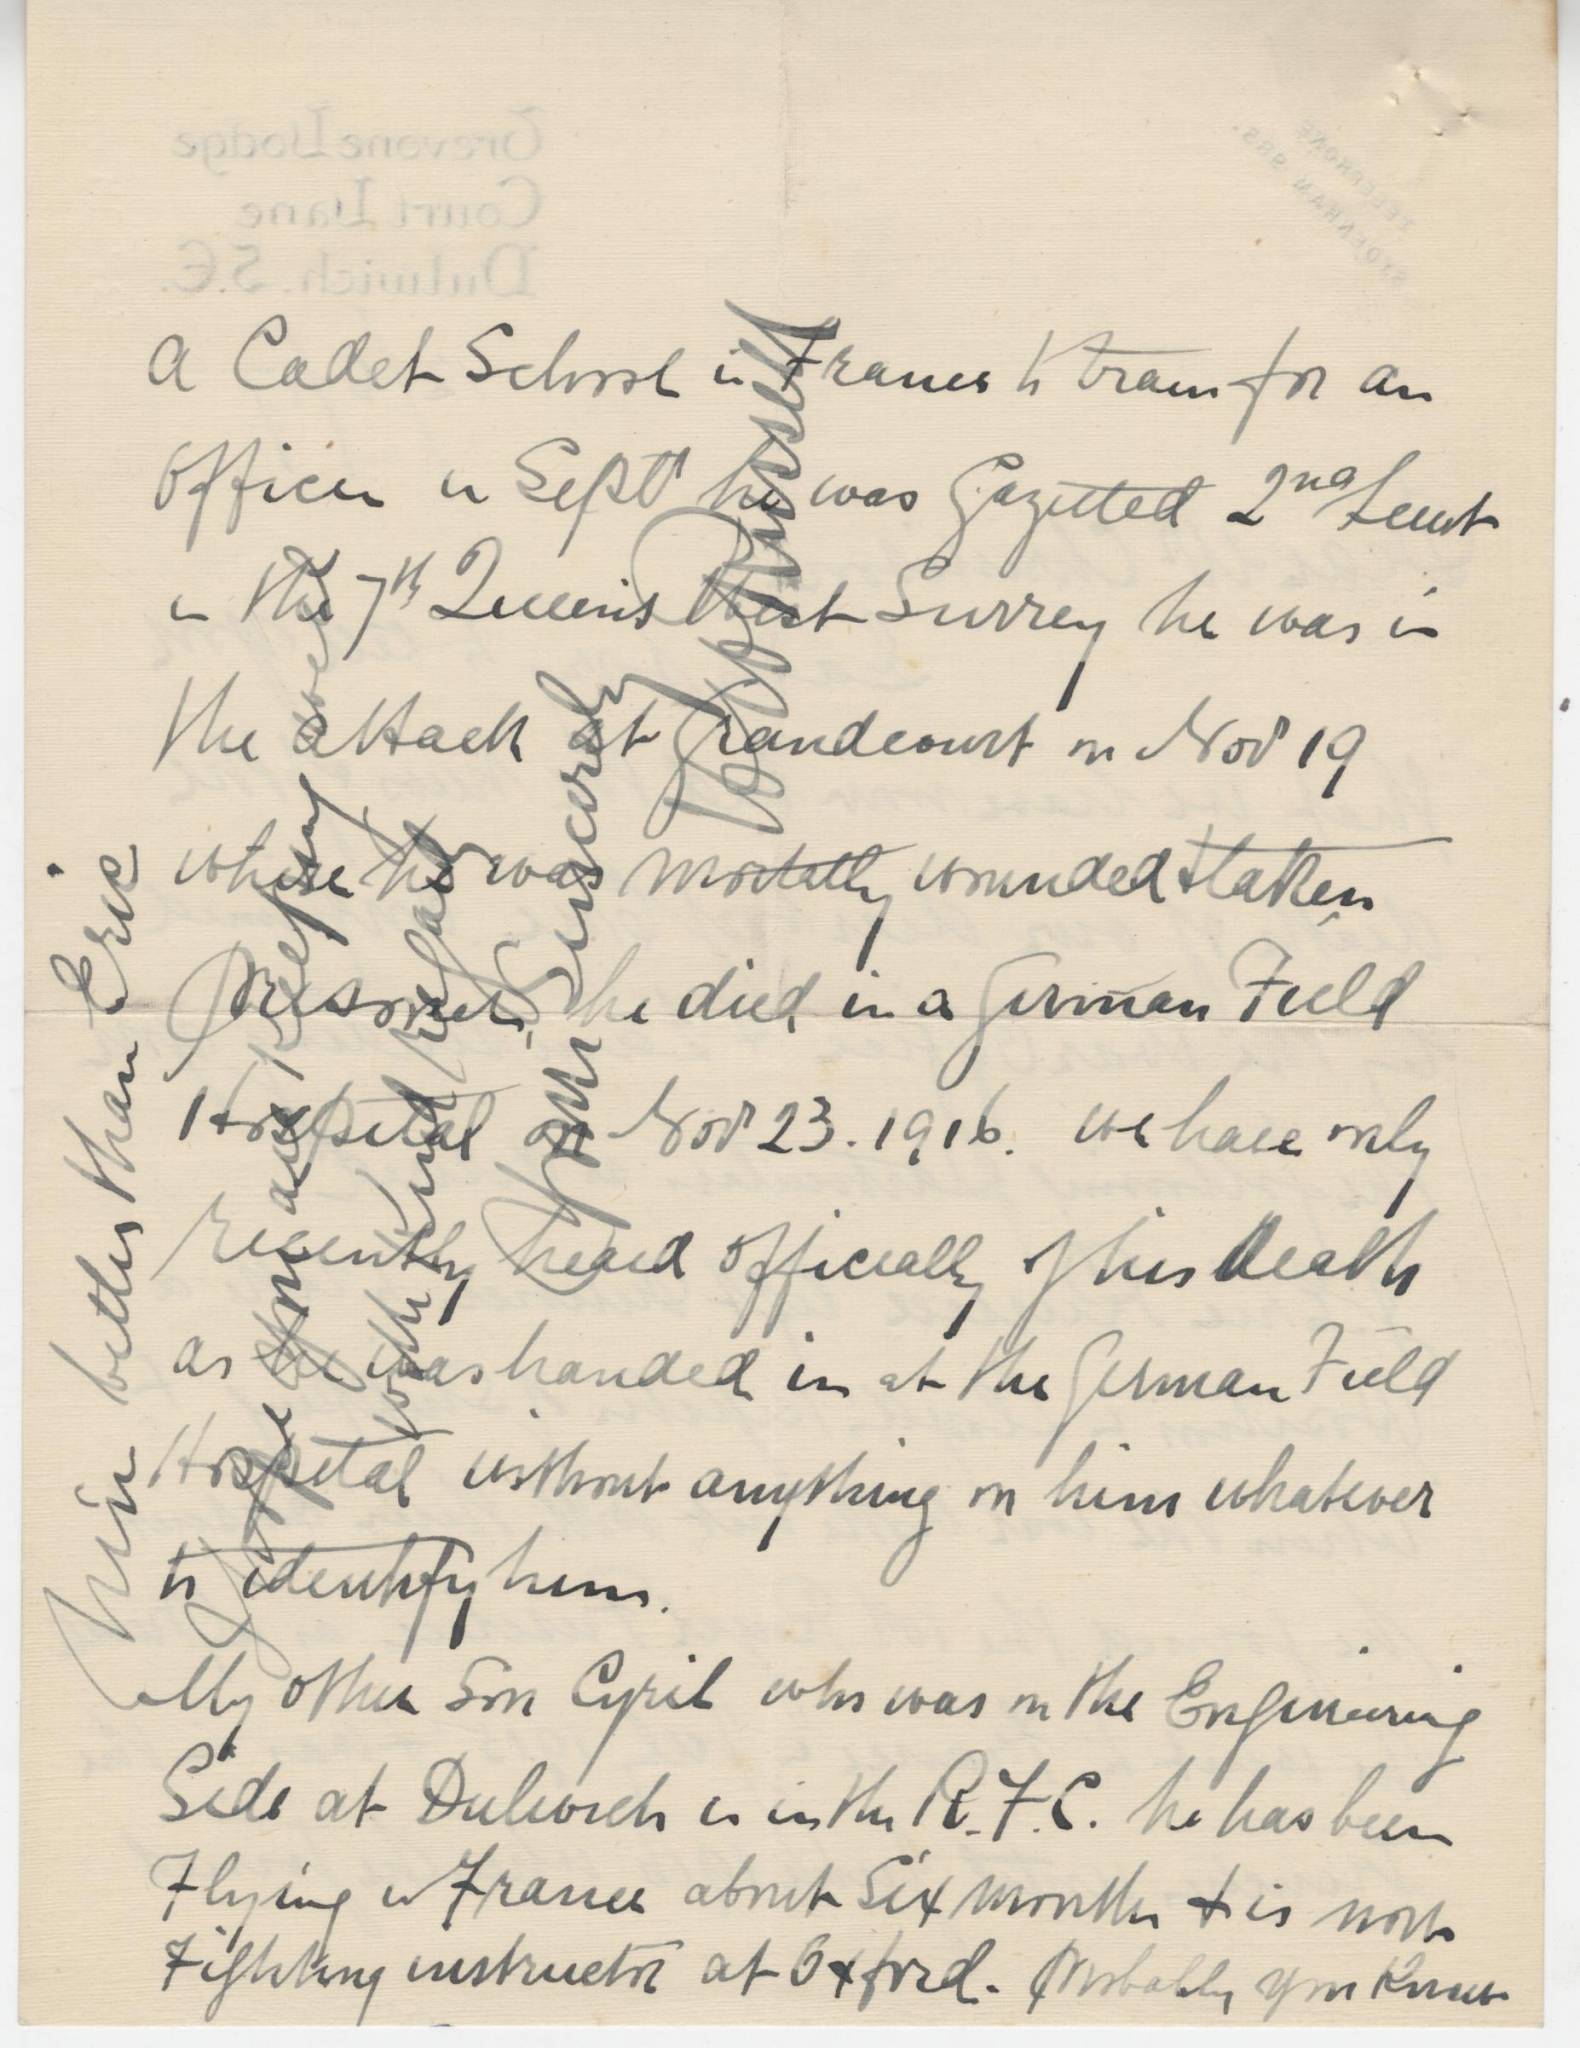 a Cadet School in France to train for an
officer in Sept he was Gazetted 2nd Lieut
in the 7th Queen's West Surrey he was in
the attack at Grandcourt on Nov 19
where he was mortally wounded & taken
prisoner, he died in a German Field
Hospital on Nov 23. 1916. we have only
recently heard officially of his death
as he was handed in at the German Field
Hospital without anything on him whatever
to identify him.
My other son Cyril who was on the Engineering
Side at Dulwich is in the R.F.C. he has been
Flying in France about Six months & is now
Fighting instructor at Oxford. Probably you know
him better than Eric
I hope you are keeping well
with kind regards
Yours sincerely
Russell
Trevone Lodge
Court Lane
Dulwich. S.E.
TELEPHONE
SYDENHAM 985.